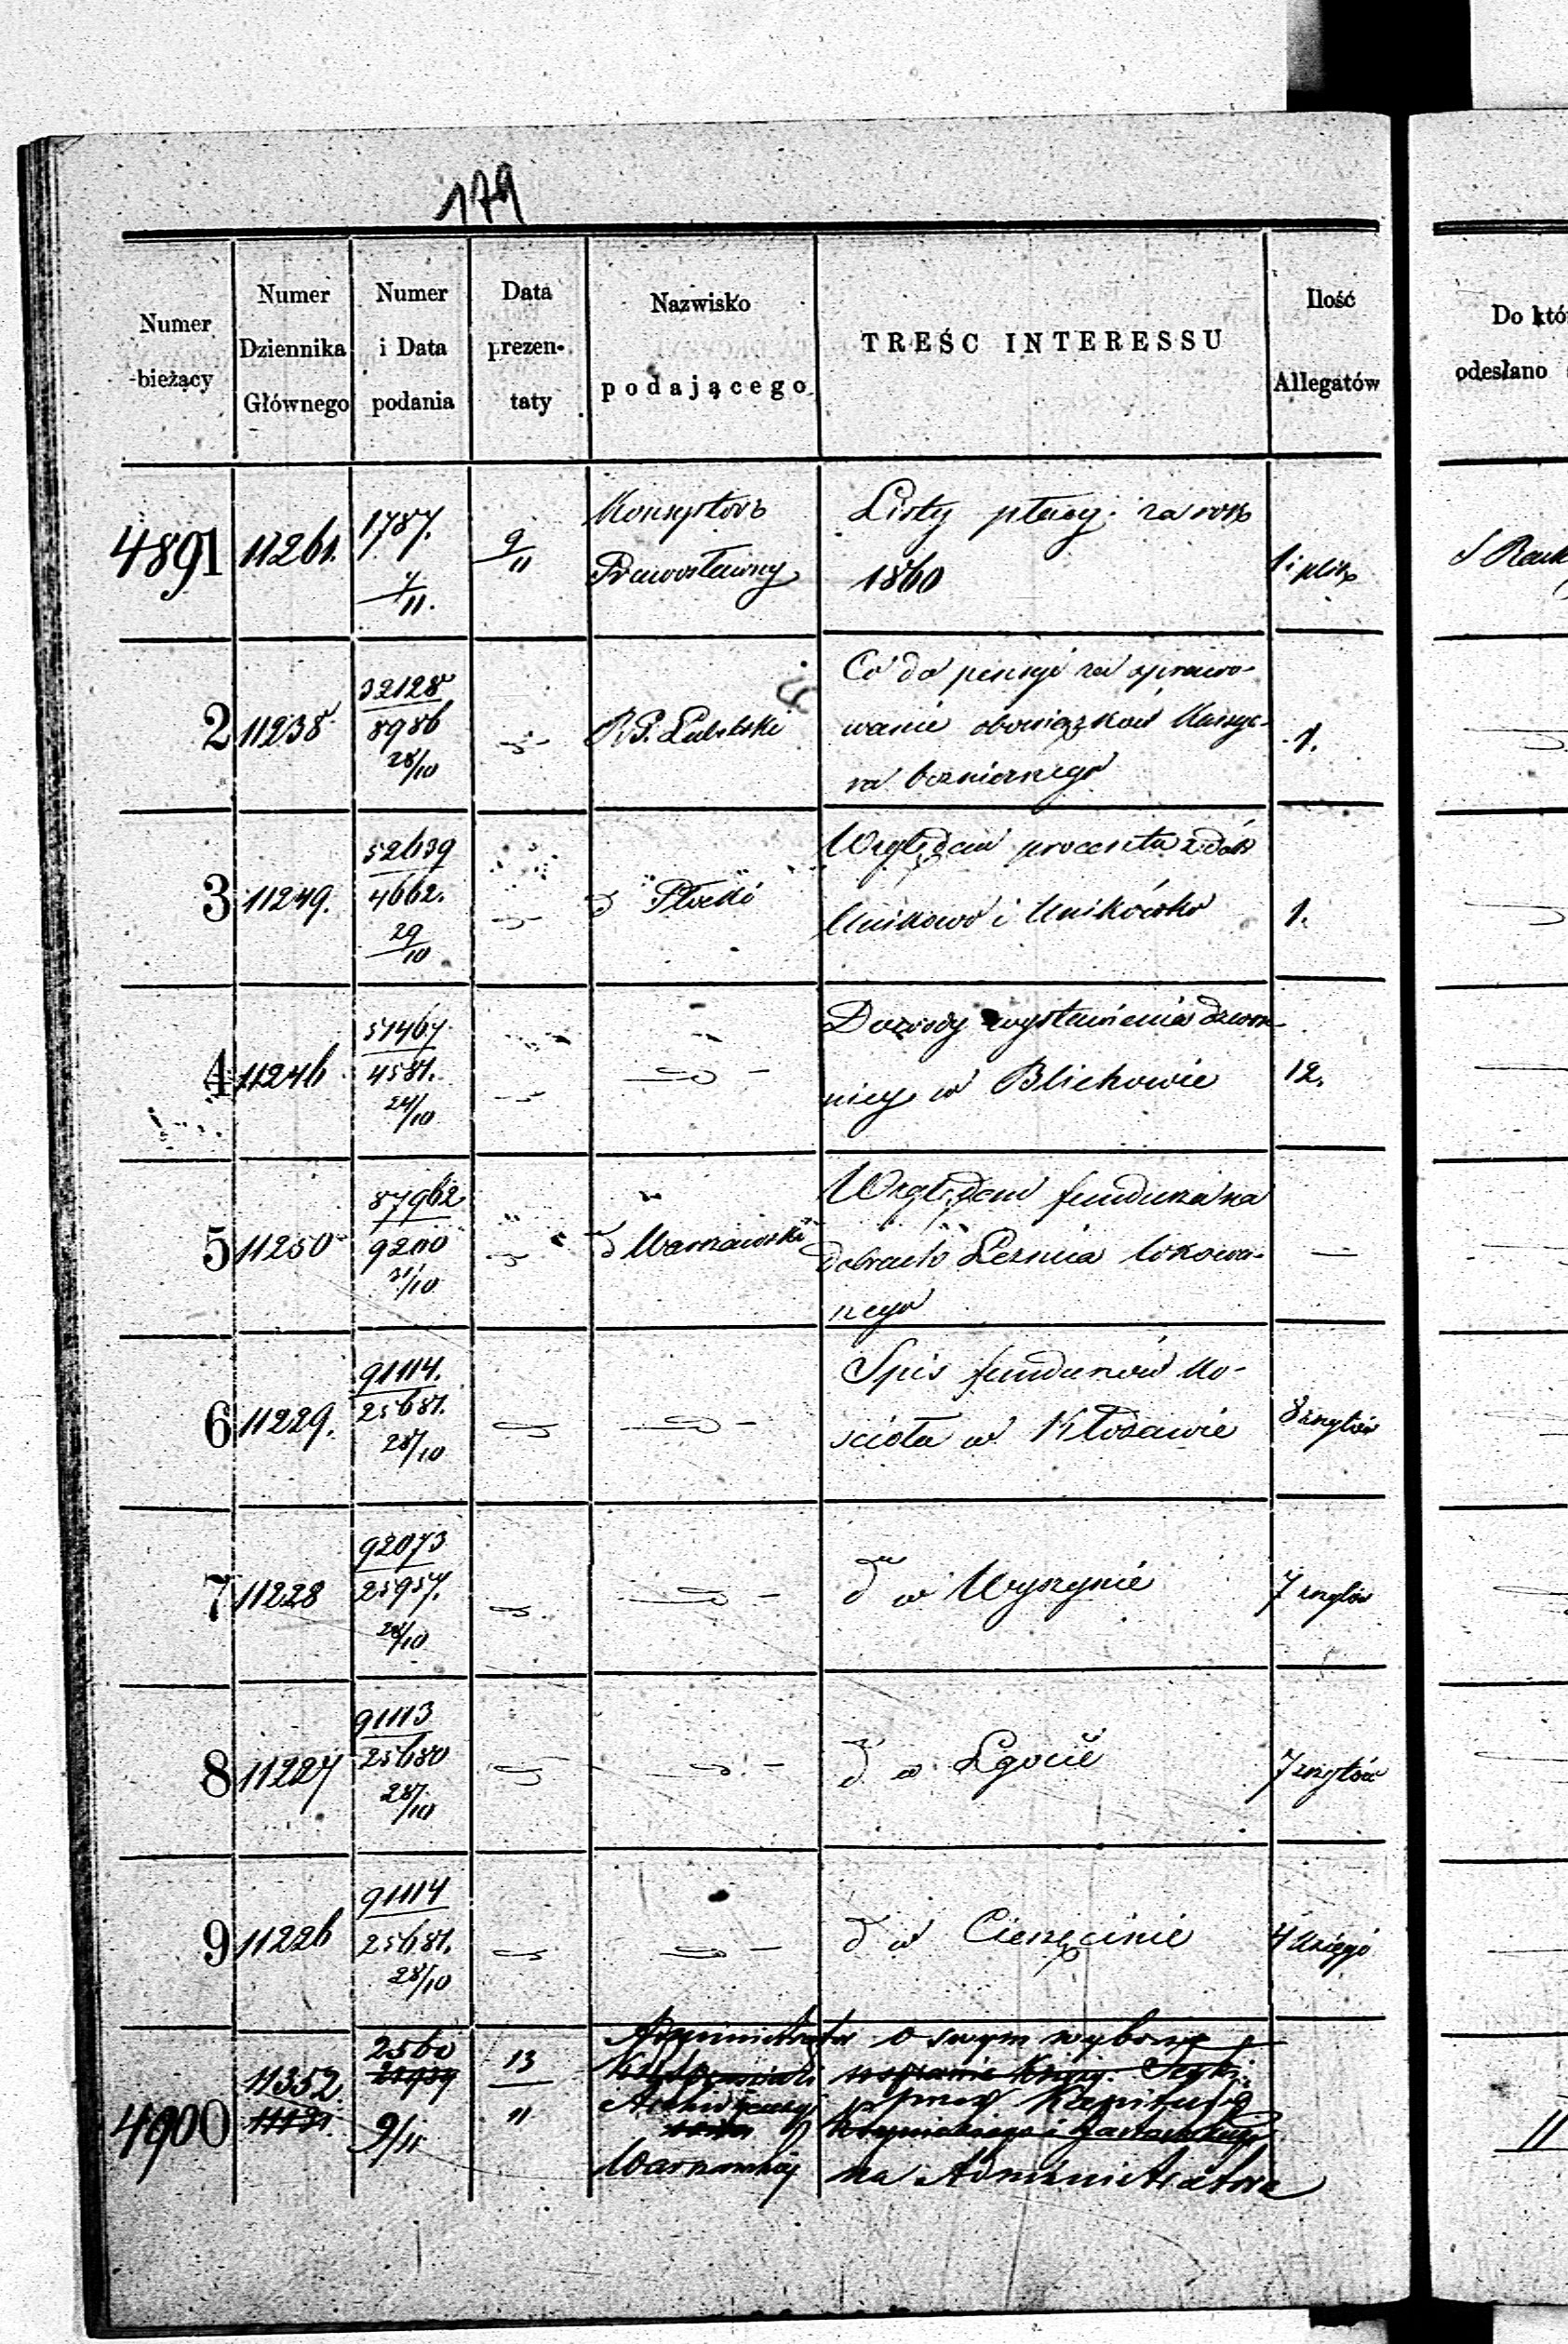 179
Numer bieżący
Numer Dziennika Głównego
Numer i Data podania
Data prezentaty
Nazwisko podającego
TREŚC INTERESSU
Ilość Allegatów
Do któ
odesłano
4891 11261. 1787. 7/11. 9/11 Konsystorz Prawosławny
Listy płacy za rok
1860
1 i plik
2 11238 32128/8986 28/10 R. G. Lubelski
Co do pensyi za sprawo-
wanie obowiązków Kassye-
ra bożnicznego
1.
3 11249. 52639/4662. 29/10 d° Płocki
Względem procentu z dóbr
Unikowo i Unikówko
1.
4 11246 51467/4581. 24/10
Dowody wystawienia dzwon-
nicy w Blichowie
12.
5 11250 87962/9200 31/10 d° Warszawski
Względem funduszu na
dobrach Leźnica lokowa-
nego
—
6 11229. 91114./25681. 28/10
Spis funduszów Ko-
ścioła w Kłodawie
8 zszytów
7 11228 92073/25957. 28/10
d° w Wyszynie
7 zszytów
8 11227 91113/25680 28/10
d° w Lgocie
7 zszytów
9 11226 91114/25681. 28/10
d° w Cieszęcinie
4 Księgi
4900 11352 2560 9/11 13/11
Administrator
Archidyecezyi
Warszawskiej
o swym wyborze
przez Kapitułę
na Administratora